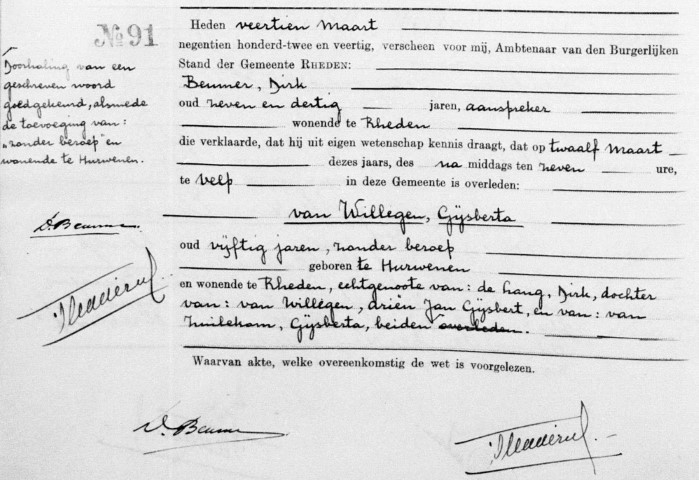 № 91
Doorhaling van een
geschreven woord
goedgekeurd, alsmede
de toevoeging van:
"zonder beroep" en
wonende te Hurwenen.
D. Beumer
Heden veertien Maart
negentien honderd-twee en veertig, verscheen voor mij, Ambtenaar van den Burgerlijken
Stand der Gemeente RHEDEN:
Beumer, Dirk
oud zeven en dertig jaren, aanspreker
wonende te Rheden
die verklaarde, dat hij uit eigen wetenschap kennis draagt, dat op twaalf Maart
dezes jaars, des na middags ten zeven ure,
te Velp in deze Gemeente is overleden:
van Willegen, Gijsberta
oud vijftig jaren, zonder beroep
geboren te Hurwenen
en wonende te Rheden, echtgenoote van: de Lang, Dirk, dochter
van: van Willegen, driën Jan Gijsbert, en van: van
Zuilekom, Gijsberta, beiden overleden.
Waarvan akte, welke overeenkomstig de wet is voorgelezen.
D. Beumer